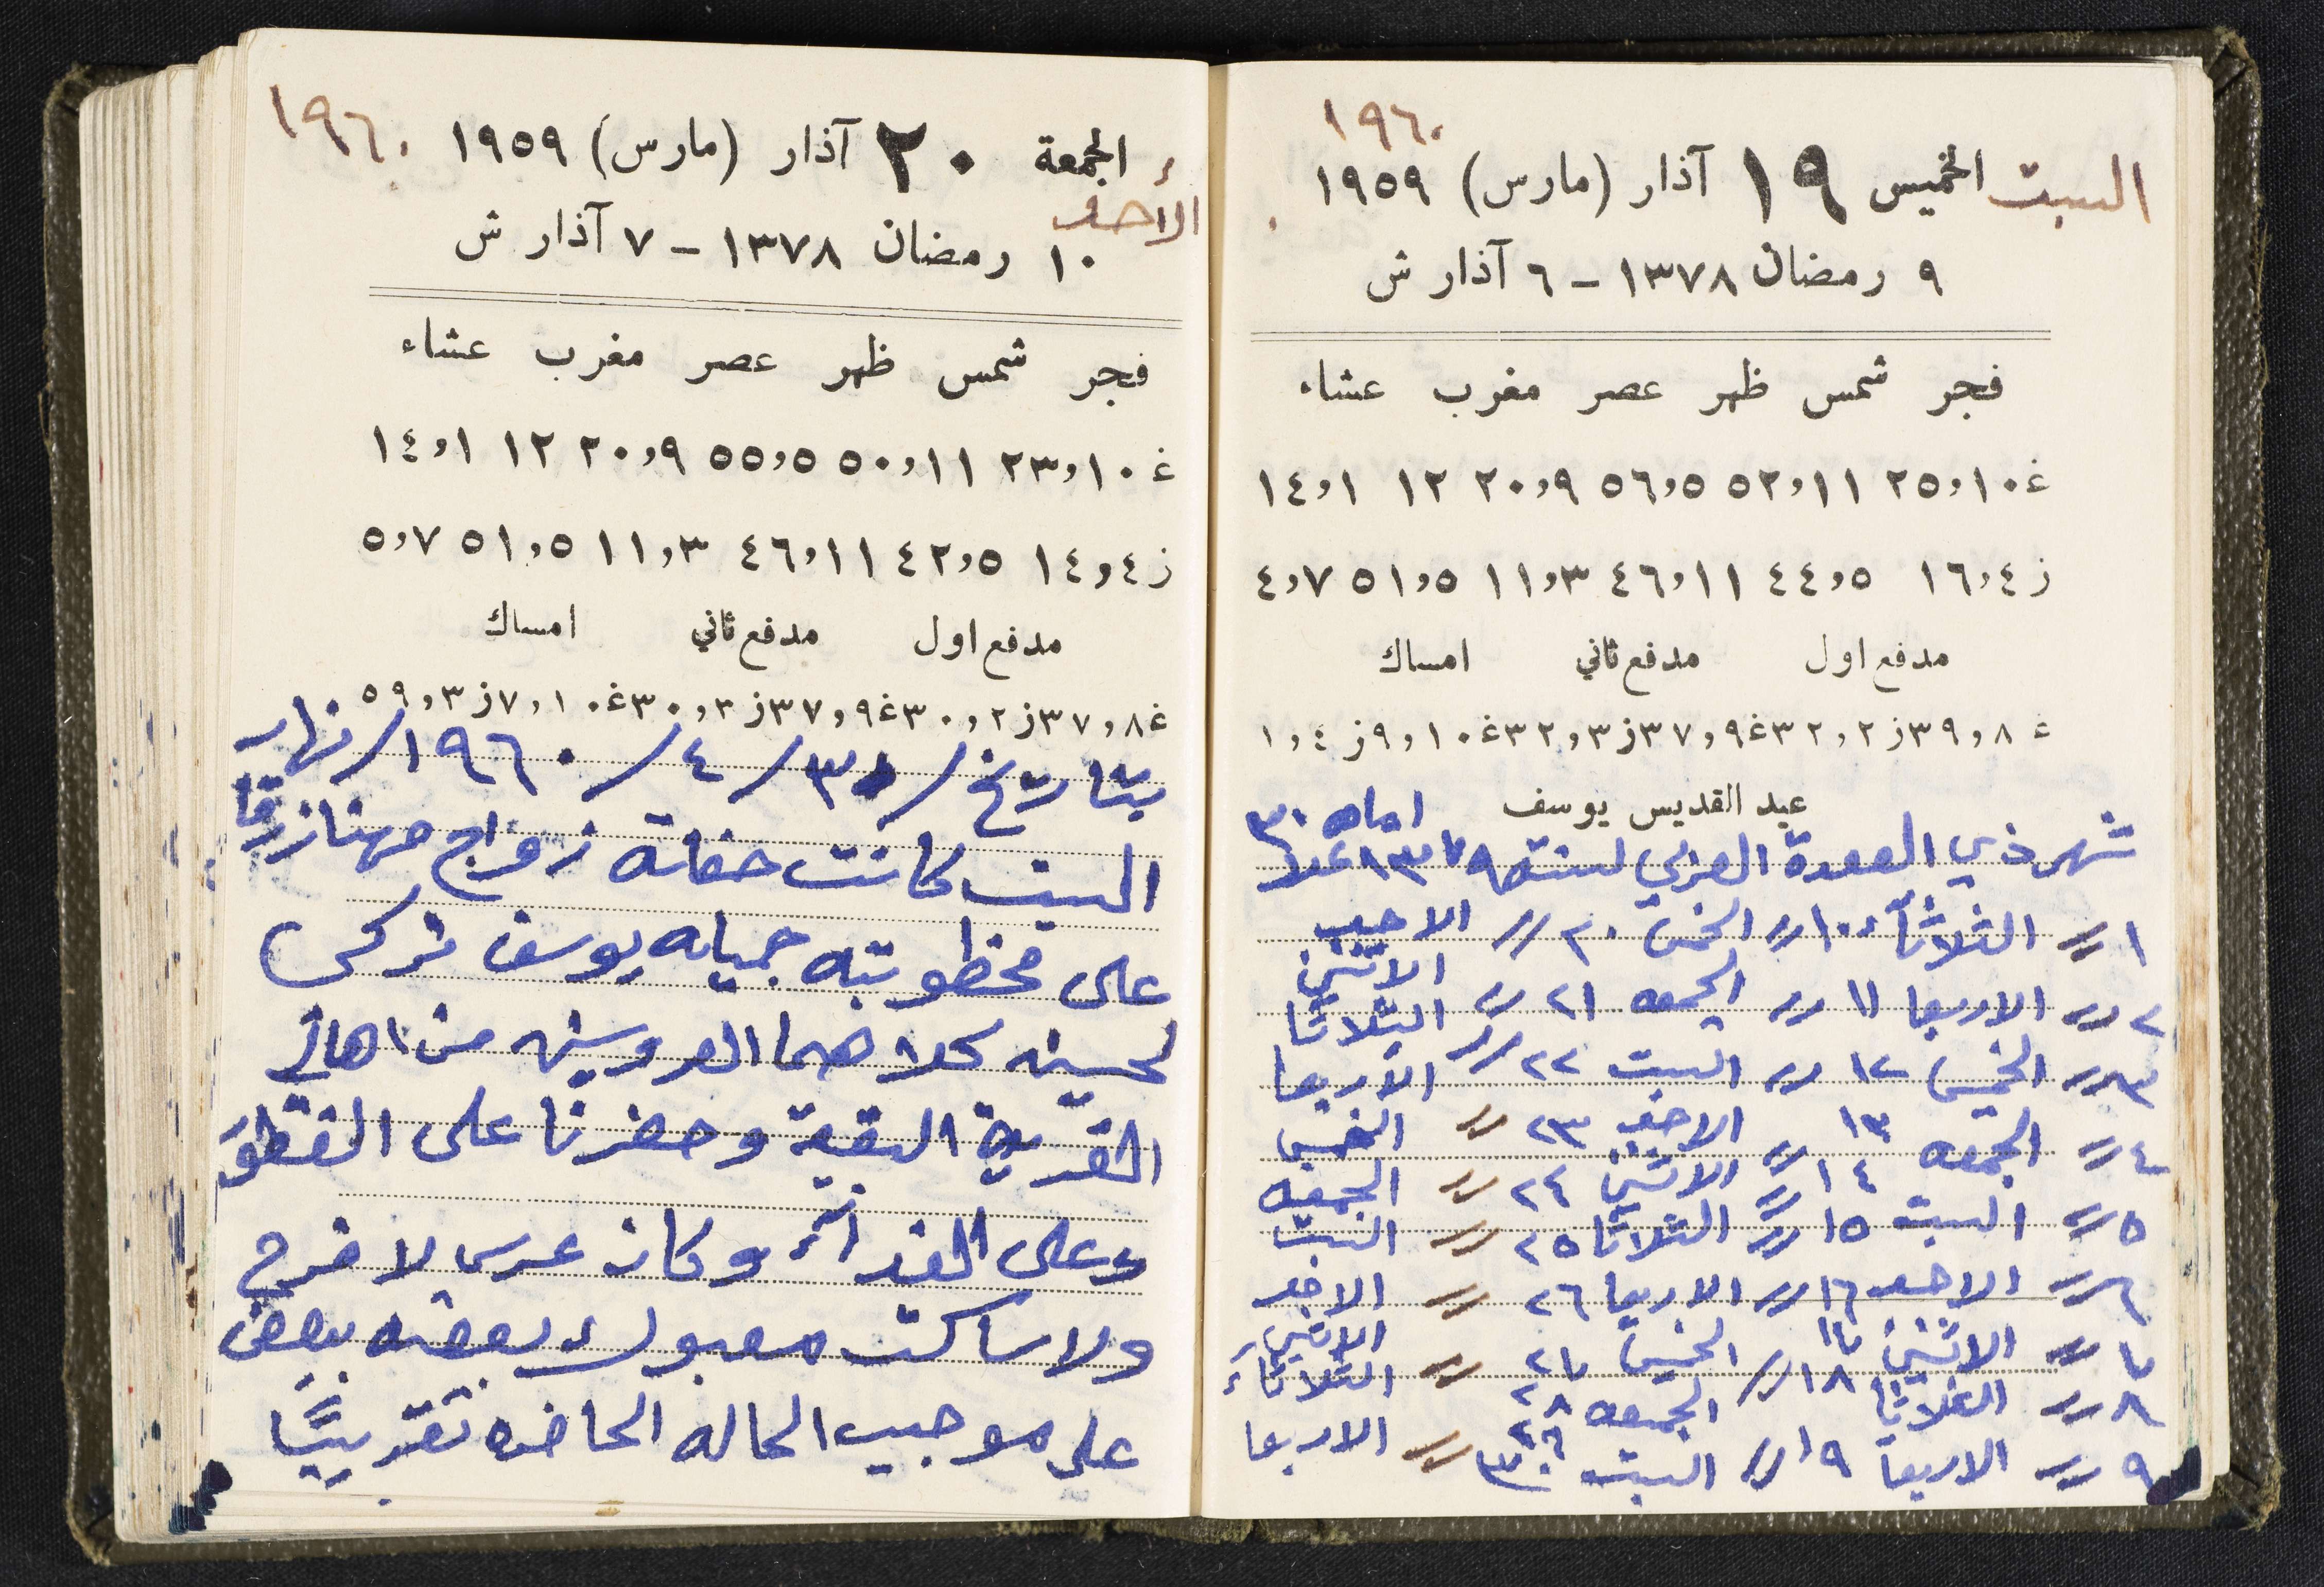 ١٩٦٠
السبت الخميس ١٩ آذار (مارس) ١٩٥٩
٩ رمضان ١٣٧٨ – ٦ آذار ش
فجر شمس ظهر عصر مغرب عشاء
غ ١٠,٢٥ ١١,٥٢ ٥,٥٦ ٩,٢٠ ١٢ ١,١٤
ز ٤,١٦ ٥,٤٤ ١١,٤٦ ٣,١١ ٥,٥١ ٧,٤
مدفع اول مدفع ثاني امساك
غ ٨,٣٩ ز ٢,٣٢ غ ٩,٣٧ ز ٣,٣٢ غ ١٠,٩ ز ٤,١
عيد القديس يوسف
شهر ذي القعدة العربي لسنة ١٣٧٩
١ // الثلاثاء ١٠ // الخميس ٢٠ // الاحد
٢ // الاربعا ١١ // الجمعه ٢١ // الاثنين
٣ // الخميس ١٢ // السبت ٢٢ // الثلاثا
٤ // الجمعه ١٣ // الاحد ٢٣ // الاربعا
٥ // السبت ١٤ // الاثنين ٢٤ // الخميس
٦ // الاحد ١٥ // الثلاثا ٢٥ // الجمعه
٧ // الاثنين ١٦ // الاربعا ٢٦ // السبت
٨ // الثلاثا ١٧ الخميس ٢٧ // الاحد
٩ // الاربعا ١٨ // الجمعه ٢٨ // الاثنين
١٩ // السبت ٢٩ الثلاثاء
٣٠ // الاربعا
١٩٦٠
الجمعة ٢٠ آذار (مارس) ١٩٥٩
الاحد
١٠ رمضان ١٣٧٨ – ٧ آذار ش
فجر شمس ظهر عصر مغرب عشاء
غ ١٠,٢٣ ١١,٥٠ ٥,٥٥ ٩,٢٠ ١٢ ١,١٤
ز ٤,١٤ ٥,٤٢ ١١,٤٦ ٣,١١ ٥,٥١ ٧,٥
مدفع اول مدفع ثاني امساك
غ ٨,٣٧ ز ٢,٣٠ غ ٩,٣٧ ز ٣,٣٠ غ ١٠,٧ ز ٣,٥٩
بتاريخ / ٣٠ / ٤ / ١٩٦٠ / نهار
السبت كانت حفلة زواج مهنا زرقا
على مخطوبته جميله يوسف تركي
لحسين كلاهما العروسين من اهالي
القرية البقيعة وحضرنا على الفطور
وعلى الغداء وكان عرس لا فرح
ولا ساكت مقبول بعضه ببعض
على موجب الحاله الحاضره تقريبًا